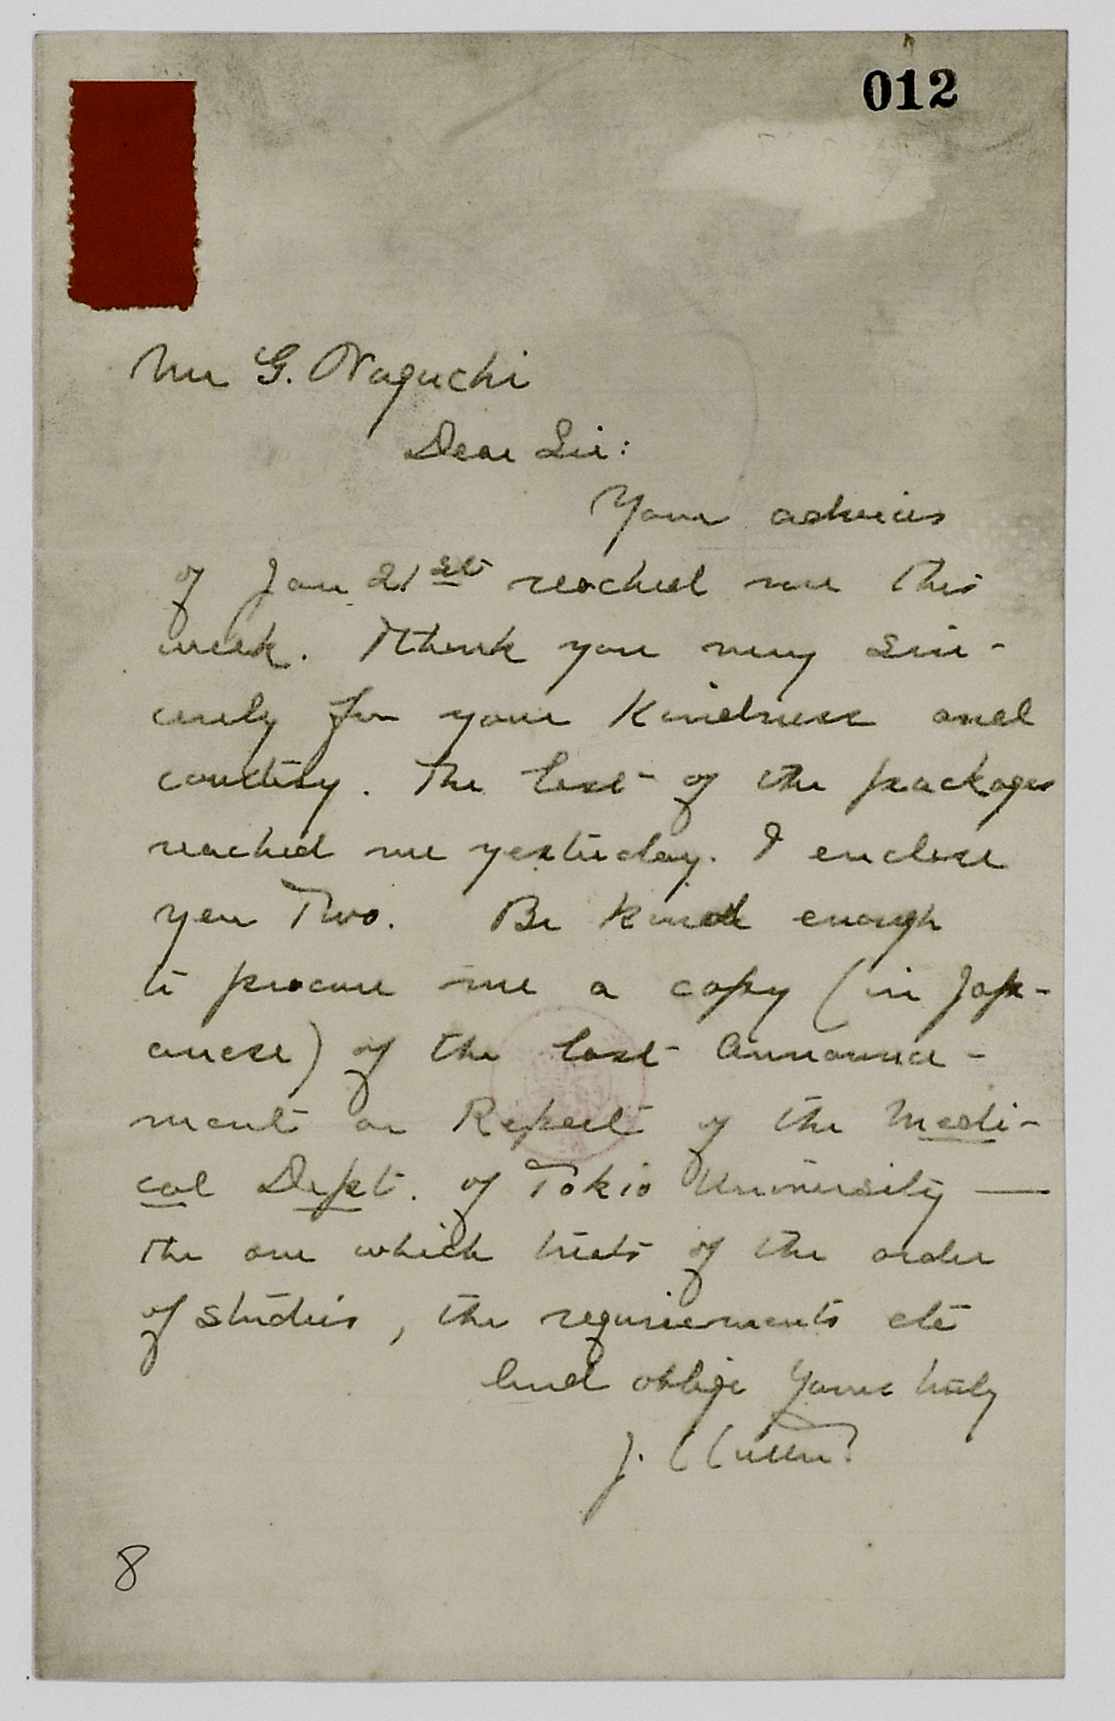 012
Mr G. Naguchi
Dear Sir:
Your advices
of Jan 21st reached me this
week. I thank you very sin-
cerely for your kindness and
courtesy. The last of the packages
reached me yesterday. I enclose
yen Two. Be kind enough
to procure me a copy (in Jap-
anese) of the last announce-
ment or Report of the Medi-
cal Dept. of Tokio University —
the one which treats of the order
of studies, the requirements etc
And oblige Yours truly
J.
8